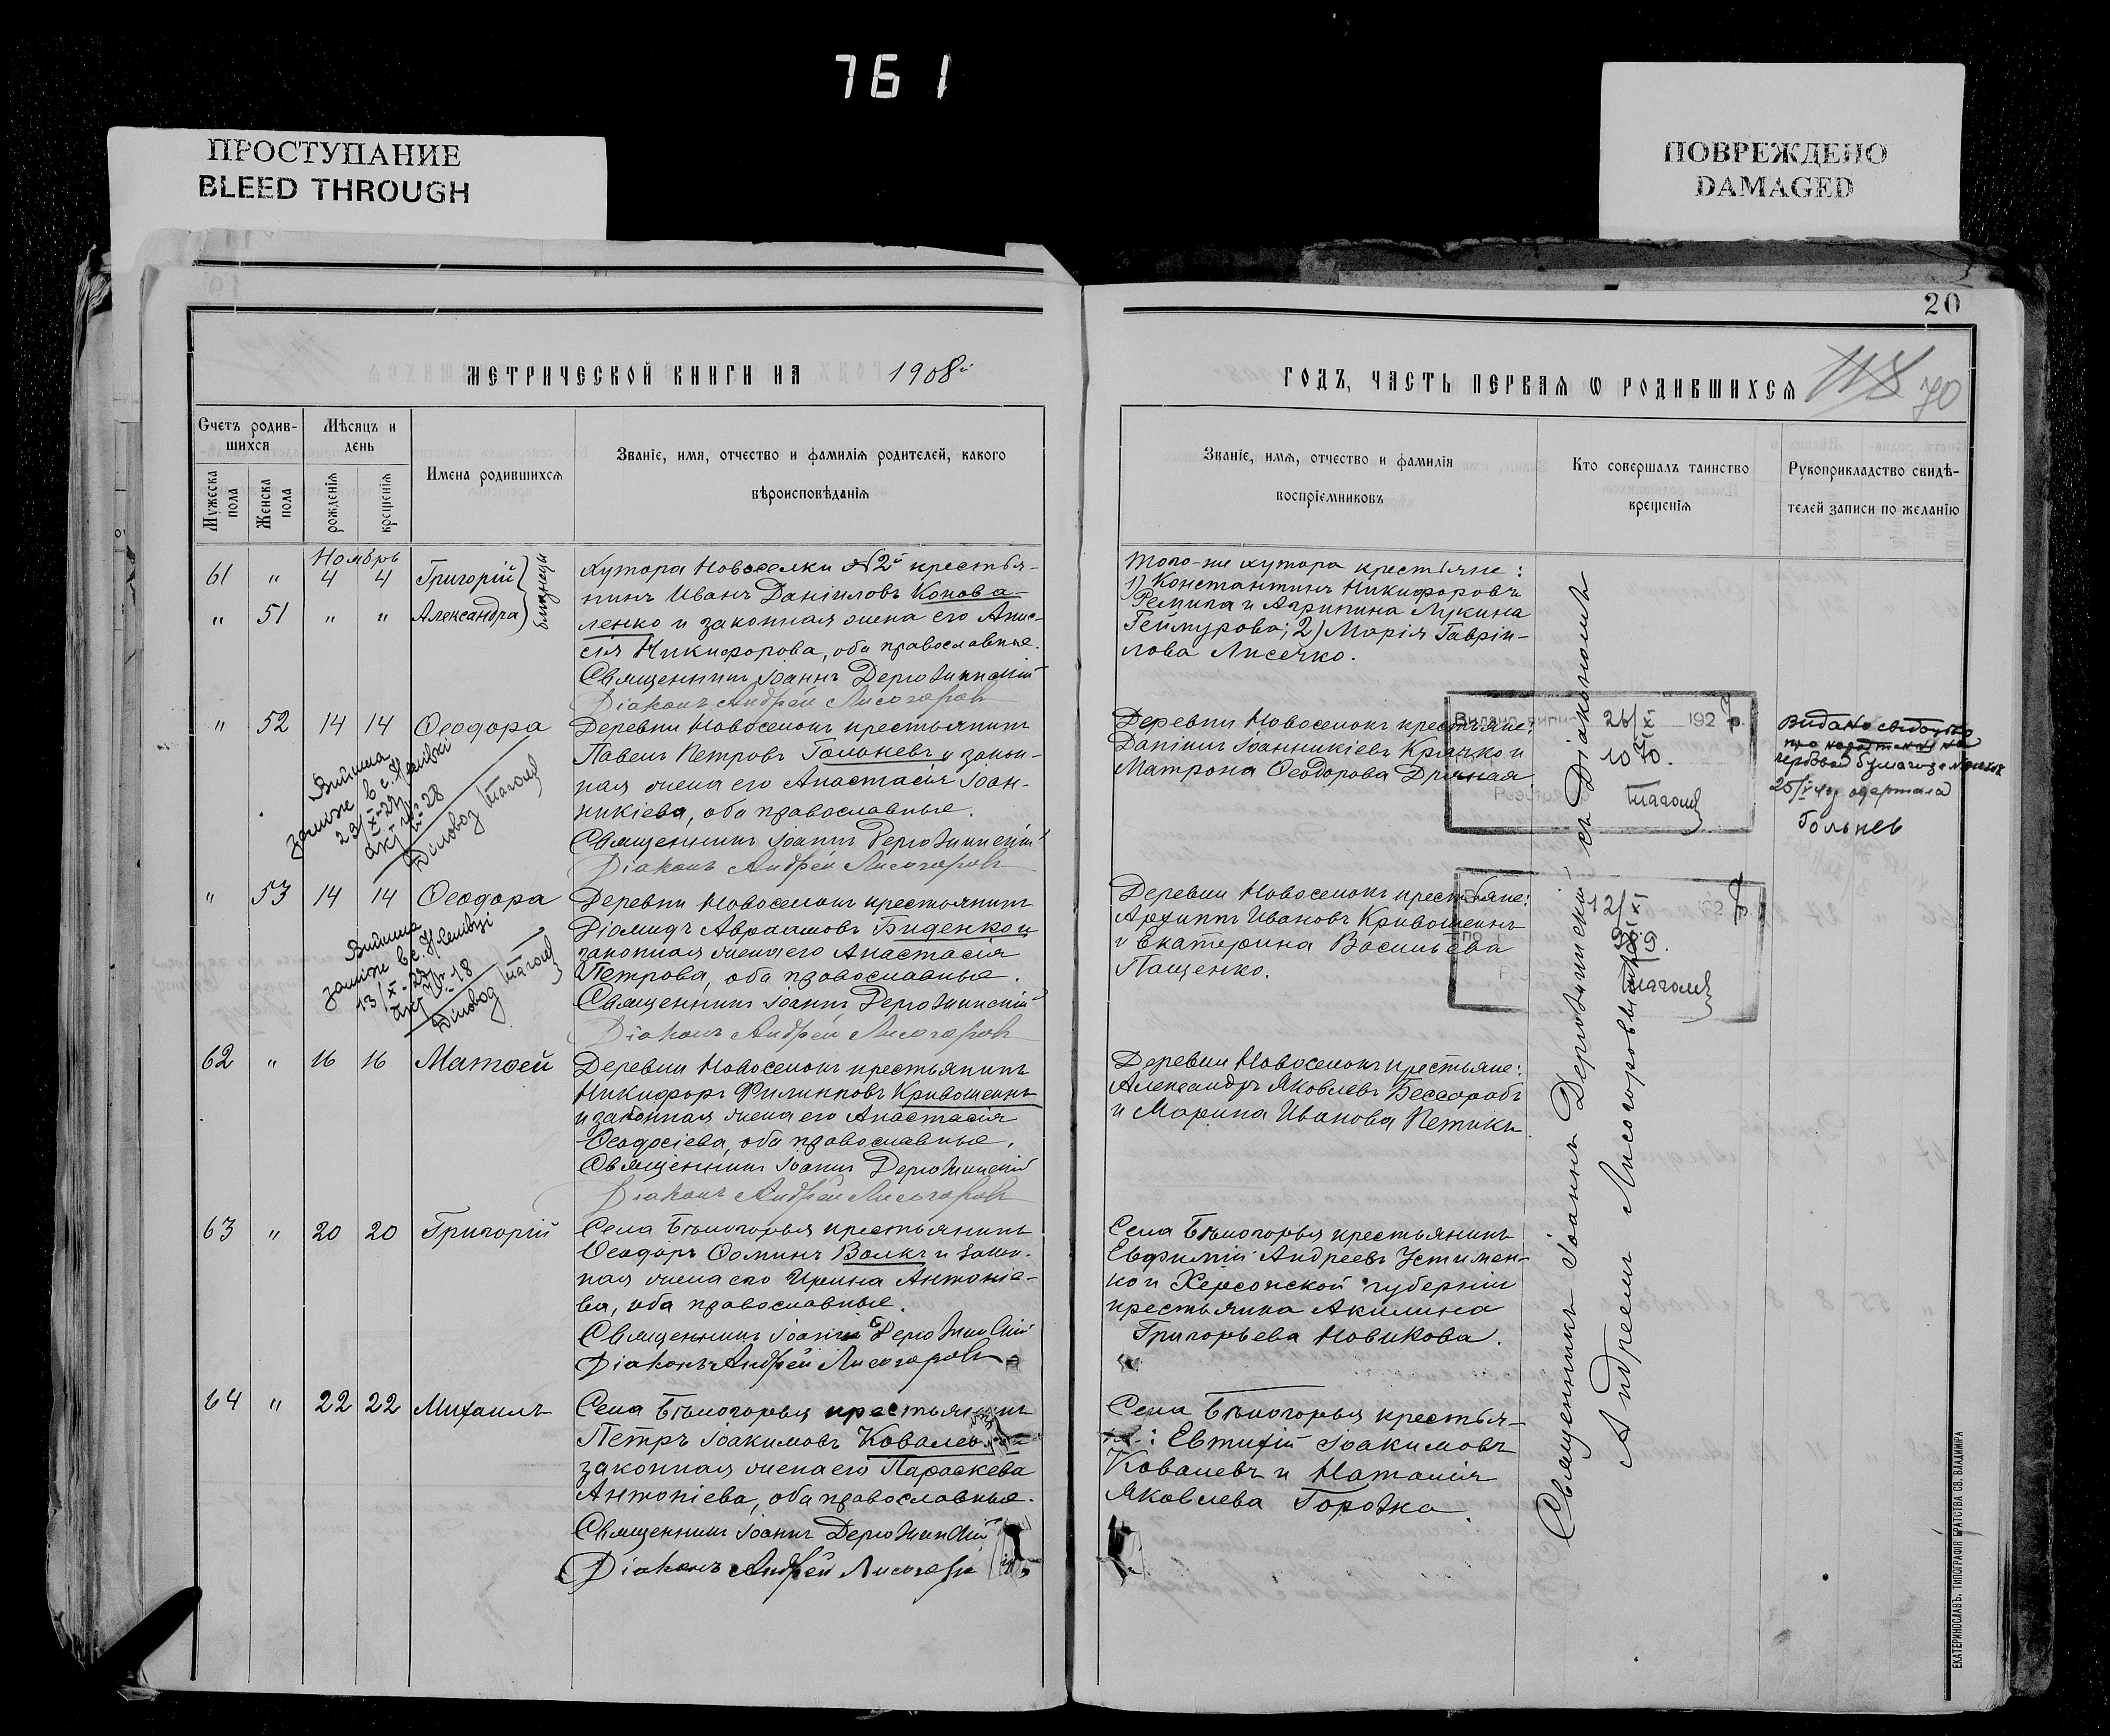 761
ПРОСТУПАНИЕ
BLEED THROUGH
ПОВРЕЖДЕНО
DAMAGED
20
МЕТРИЧЕСКОЙ КНИГИ НА 1908й
ГОДЪ, ЧАСТЬ ПЕРВАЯ Ѡ РОДИВШИХСЯ
70
Счетъ родив-
шихся
Мѣсяцъ и
день
Мужеска
пола
Женска
пола
рожденія
крещенія
Имена родившихся
Званіе, имя, отчество и фамилія родителей, какого
вѣроисповѣданія
Званіе, имя, отчество и фамилія
воспріемниковъ
Кто совершалъ таинство
крещенія
Рукоприкладство свидѣ-
телей записи по желанію
Ноябрь
61 " 4 4 Григорій
" 51 " " Александра
близнецы
Хутора Новоселки №2й крестья-
нинъ Иванъ Даніиловъ Конова-
ленко и законная жена его Анис-
сія Никифорова, оба православные.
Священникъ Іоаннъ Держинскій
Діаконъ Андрей Лисогоровъ
Того-же хутора крестьяне:
1) Константинъ Никифоровъ
Ремипа и Агрипина Лукина
Геймурова; 2) Марія Гаврiи-
лова Лисечко.
" 52 14 14 Ѳеодора
Деревни Новоселокъ крестьянинъ
Павелъ Петровъ Голоневъ и закон-
ная жена его Анастасія Іоан-
никіева, оба православные.
Священникъ Іоаннъ Держинскій
Діаконъ Андрей Лисогоровъ
Вийшла
заміж в с. Н
Діловод Шагом
Деревни Новоселокъ крестьяне:
Даніилъ Іоанникіевъ Крячко и
Матрона Ѳеодорова Дрючная
26/XI 192 р.
1070.
Видано
про народження на
гербовой бумаге
25/V одержала
Гольнев
" 53 14 14 Ѳеодора
Деревни Новоселокъ крестьянинъ
Діомидъ Авраамовъ Биденко и
законная жена его Анастасія
Петрова, оба православные.
Священникъ Іоаннъ Держинскій
Діаконъ Андрей Лисогоровъ
Вийшла
заміж в с. Н
Діловод Шагом
Деревни Новоселокъ крестьяне:
Архиппъ Ивановъ Кривошеинъ
и Екатерина Васильева
Пащенко.
12/XI
62 " 16 16 Матѳей
Деревни Новоселокъ крестьянинъ
Никифоръ Филипповъ Кривошеинъ
и законная жена его Анастасія
Ѳеодосіева, оба православные.
Священникъ Іоаннъ Держинскій
Діаконъ Андрей Лисогоровъ
Деревни Новоселокъ крестьяне:
Александръ Яковлевъ Бессарабъ
и Марина Иванова Петикъ
63 " 20 20 Григорій
Села Бѣлогорья крестьянинъ
Ѳеодоръ Ѳоминъ Волкъ и закон-
ная жена его Ирина Антоніе-
ва, оба православные.
Священникъ Іоаннъ Держинскій
Діаконъ Андрей Лисогоровъ
Села Бѣлогорья крестьянинъ
Евфимій Андреевъ Устимен-
ко и Херсонской губерніи
крестьянка Акилина
Григорьева Новикова.
64 " 22 22 Михаилъ
Села Бѣлогорья крестьянинъ
Петръ Іоакимовъ Ковалев
законная жена его Параскева
Антоніева, оба православные.
Священникъ Іоаннъ Держинскій
Діаконъ Андрей Лисогоро
Села Бѣлогорья крестья-
не: Евтихій Іоакимовъ
Ковалевъ и Наталія
Яковлева Горовка.
Священникъ Іоаннъ Держинскій съ Діакономъ
Андреемъ Лисогоровымъ
ЕКАТЕРИНОСЛАВЪ. ТИПОГРАФІЯ БРАТСТВА СВ. ВЛАДИМІРА